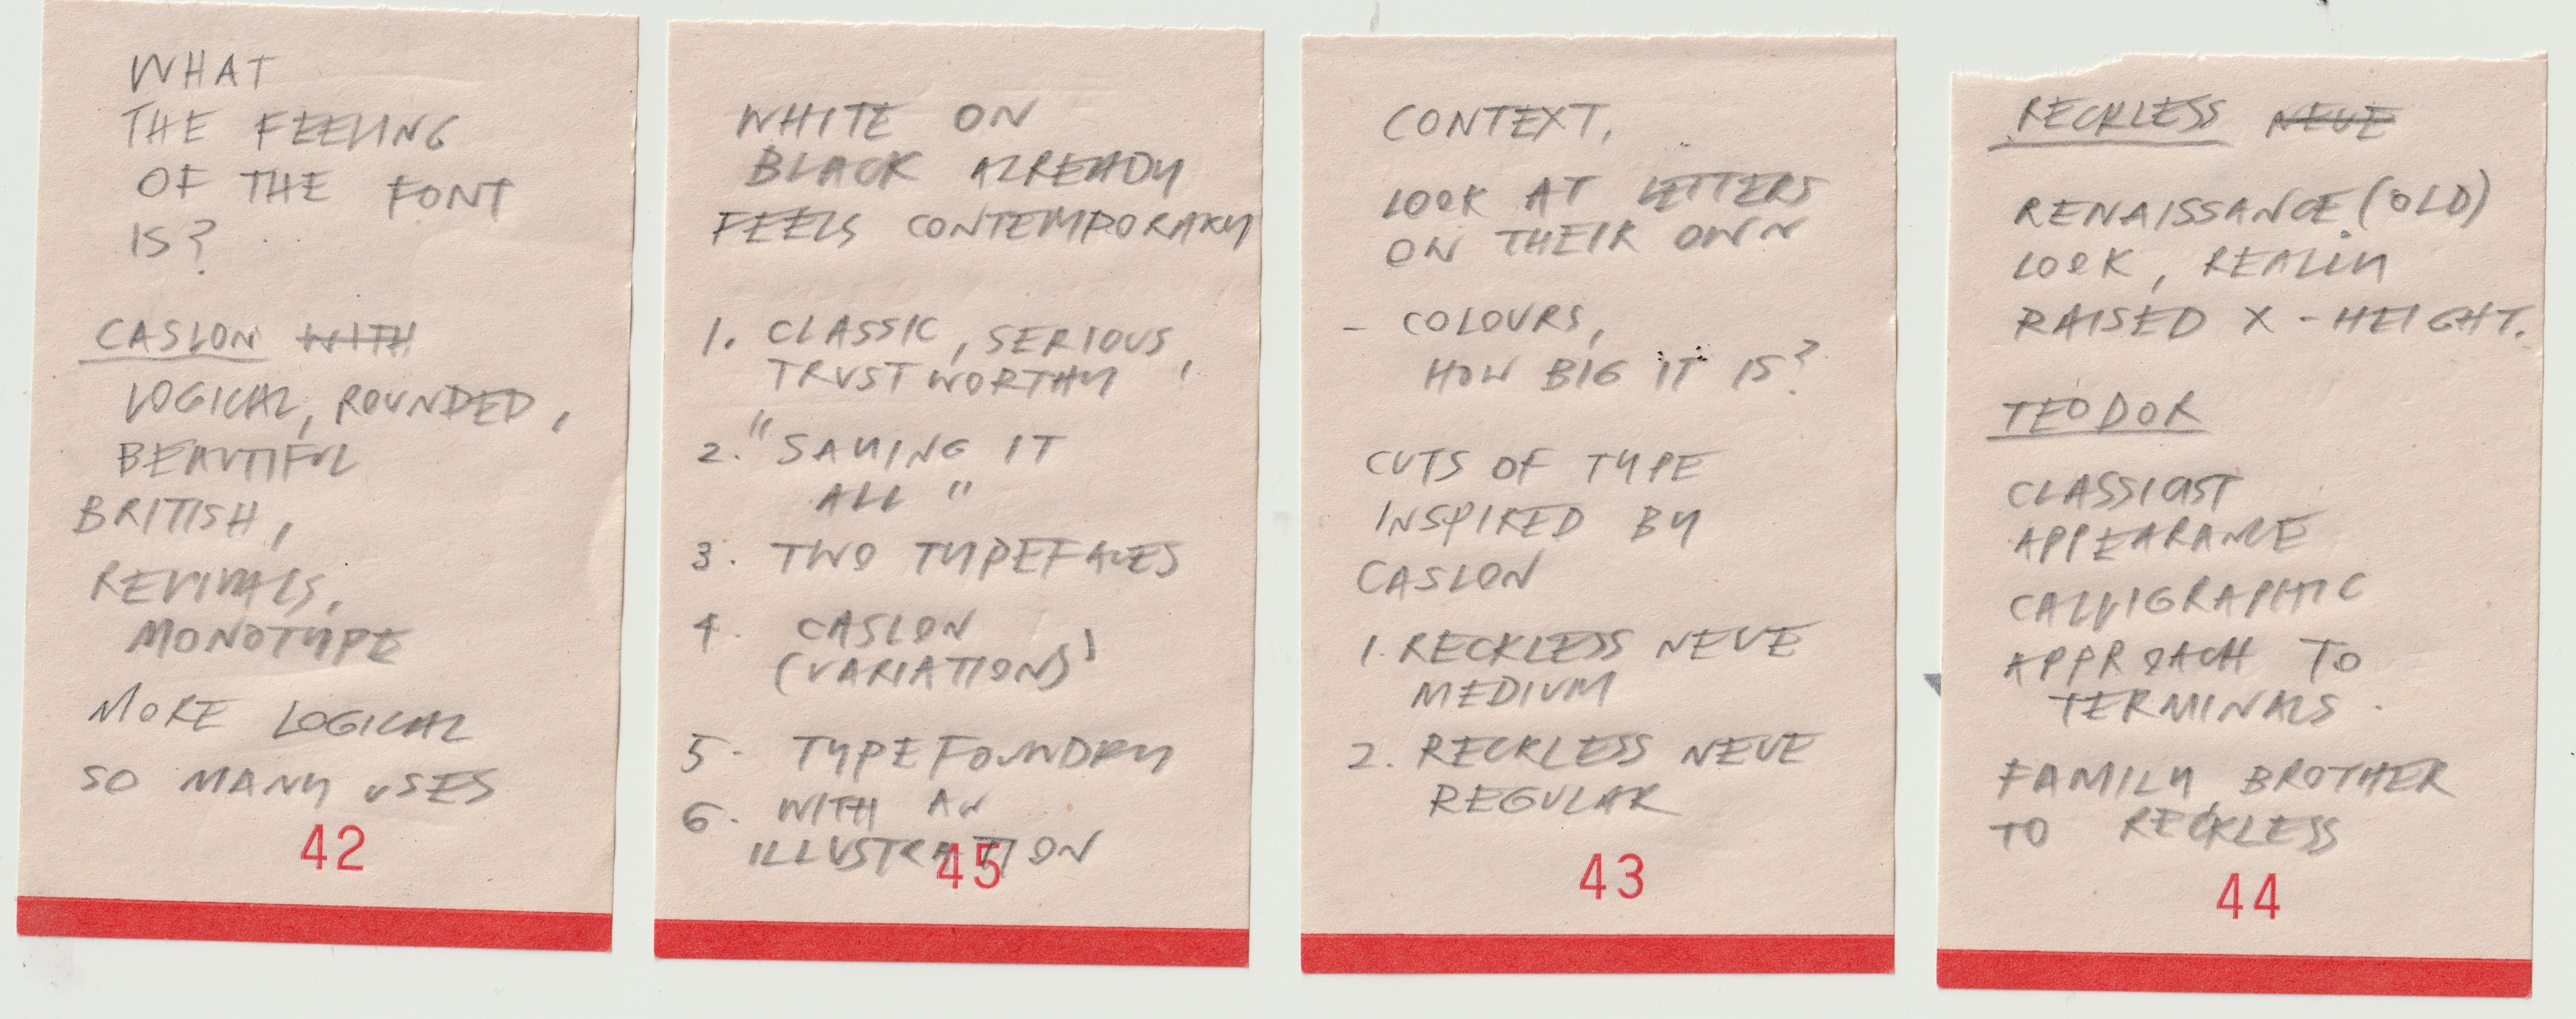 WHAT
THE FEELING
OF THE FONT
IS?
CASLON WITH
LOGICAL, ROUNDED,
BEAUTIFUL
BRITISH,
REVIVALS,
MONOTYPE
MORE LOGICAL
SO MANY USES
42
WHITE ON
BLACK ALREADY
FEELS CONTEMPORARY
1. CLASSIC, SERIOUS,
TRUSTWORTHY
2. "SAYING IT
ALL"
3. TWO TYPEFACES
4. CASLON
(VARIATIONS)
5- TYPEFOUNDRY
6- WITH AN
ILLUSTRATION
45
CONTEXT.
LOOK AT LETTERS
ON THEIR OWN
- COLOURS,
HOW BIG IT IS?
CUTS OF TYPE
INSPIRED BY
CASLON
1. RECKLESS NEUE
MEDIUM
2. RECKLESS NEUE
REGULAR
43
RECKLESS NEUE
RENAISSANCE (OLD)
LOOK, REALLY
RAISED X-HEIGHT.
TEODOR
CLASSICIST
APPEARANCE
CALLIGRAPHIC
APPROACH TO
TERMINALS.
FAMILY BROTHER
TO RECKLESS
44